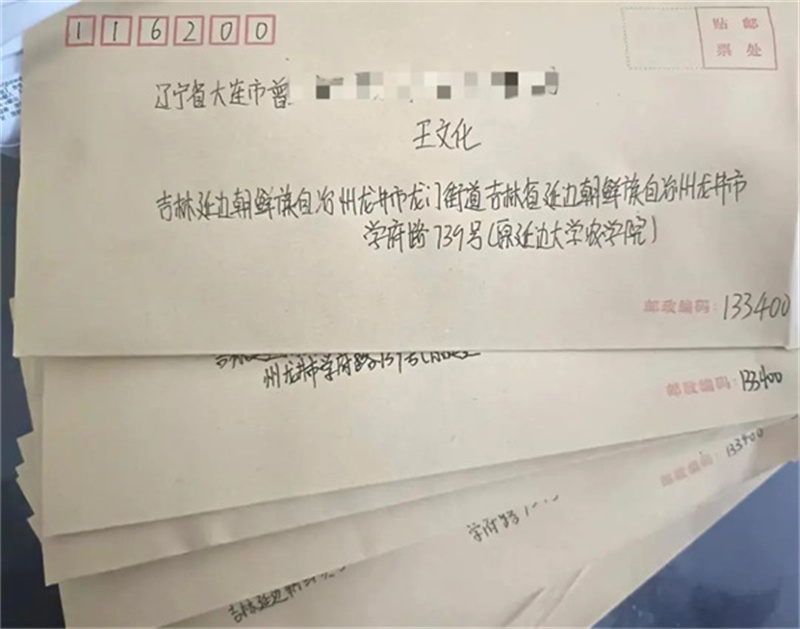 116200
贴邮
票处
辽宁省大连市普
王文化
吉林延边朝鲜族自治州龙井市龙门街道吉林省延边朝鲜族自治州龙井市
学府路739号(原延边大学农学院)
邮政编码:133400
州龙井市学府路739号
邮政编码:133400
邮政编码:133400
学府路
吉林延边朝